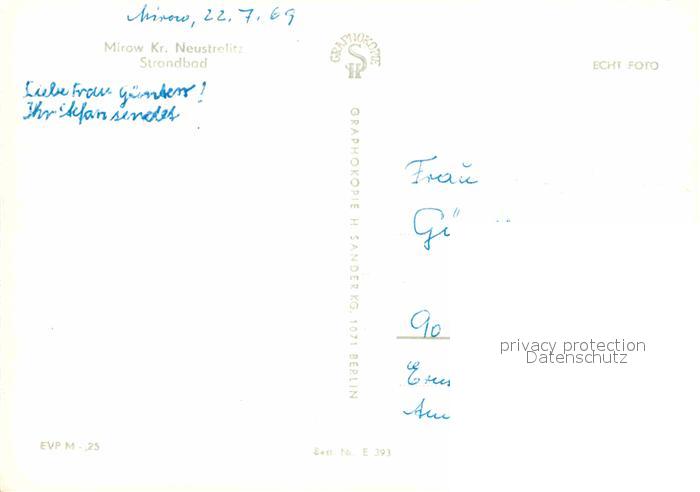 Mirow, 22.7.69
Mirow Kr. Neustrelitz
Strandbad
Liebe Frau Günther!
Ihr Stefan sendet
GRAPHOKOPIE
ECHT FOTO
GRAPHOKOPIE H. SANDER KG, 1071 BERLIN
Frau
Gü
90
privacy protection
Datenschutz
EVP M -,25
Best. Nr. E 393